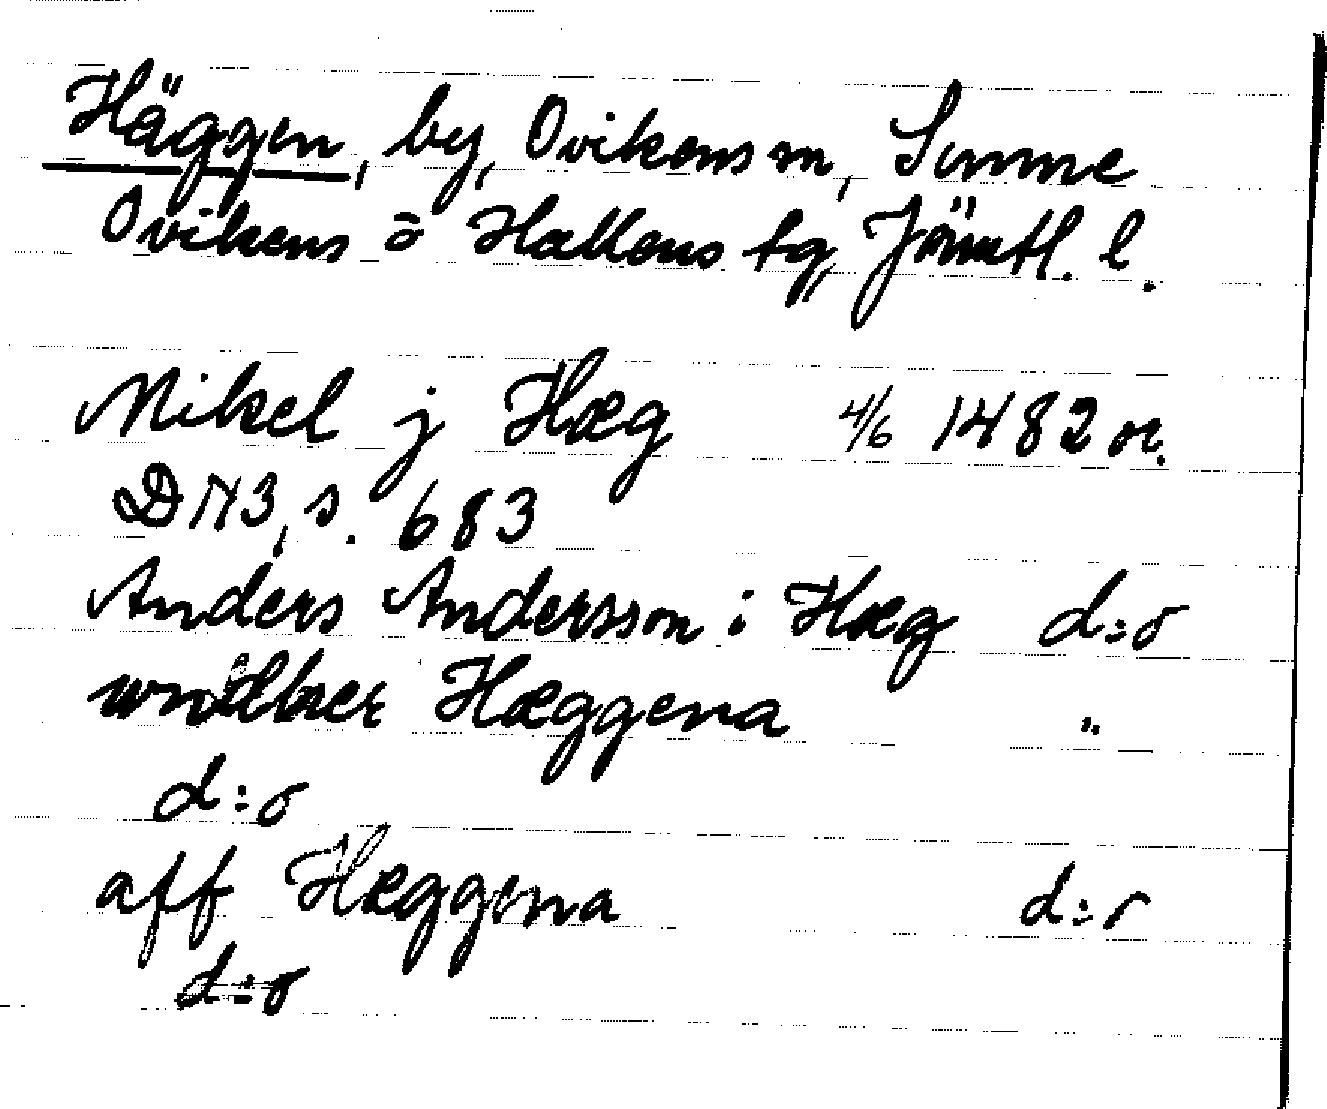 Häggen, by, Ovikens sn, Sunne
Ovikens o Hallens tg, Jämtl. l.
Mikel j Hæg 4/6 1482 or.
DN 3, s. 683
Anders Andersson i Hæg d:o
Hæggena "
d:o
aff Hæggena d:o
d:o